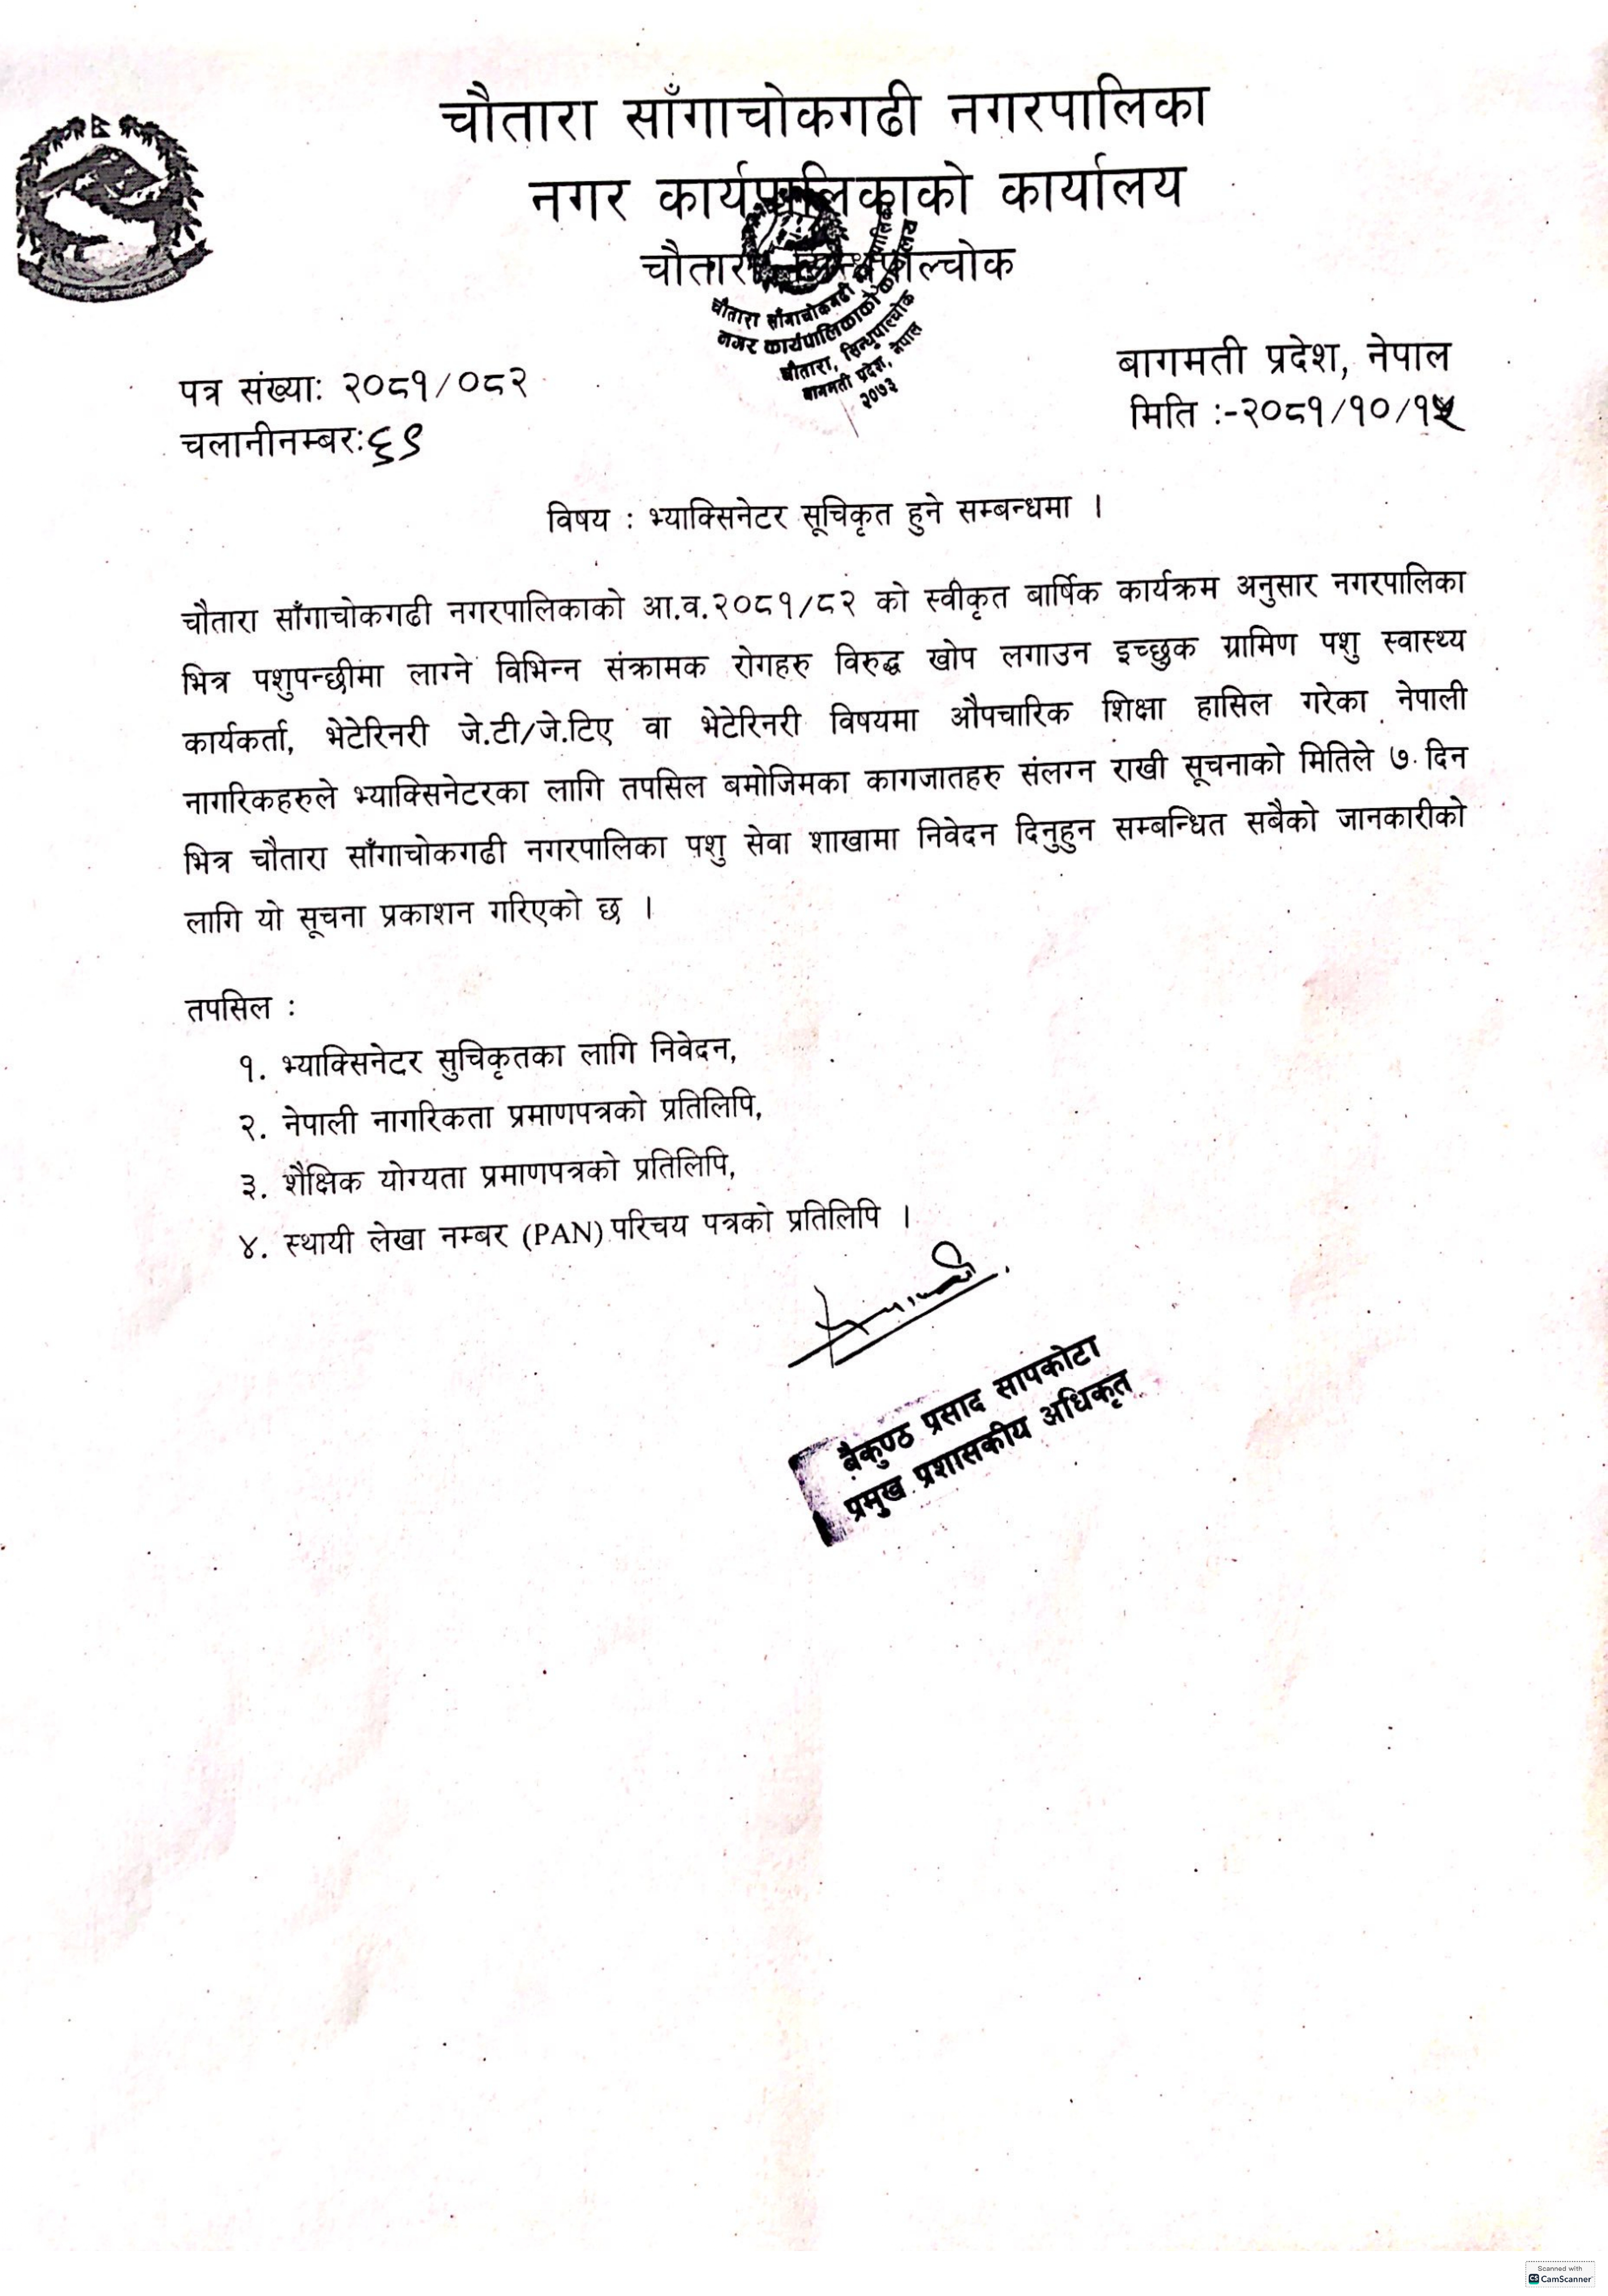 चौतारा साँगाचोकगढी नगरपालिका
नगर कार्यपालिकाको कार्यालय
चौतारा सिन्धुपाल्चोक
चौतारा साँगाचोकगढी नगरपालिका
नगर कार्यपालिकाको कार्यालय
चौतारा, सिन्धुपाल्चोक
बागमती प्रदेश, नेपाल
२०७३
बागमती प्रदेश, नेपाल
पत्र संख्याः २०८१/०८२
मिति :-२०८१/१०/१५
चलानीनम्बरः६९
विषय : भ्याक्सिनेटर सूचिकृत हुने सम्बन्धमा ।
चौतारा साँगाचोकगढी नगरपालिकाको आ.व.२०८१/८२ को स्वीकृत बार्षिक कार्यक्रम अनुसार नगरपालिका
भित्र पशुपन्छीमा लाग्ने विभिन्न संक्रामक रोगहरु विरुद्ध खोप लगाउन इच्छुक ग्रामिण पशु स्वास्थ्य
कार्यकर्ता, भेटेरिनरी जे.टी/जे.टिए वा भेटेरिनरी विषयमा औपचारिक शिक्षा हासिल गरेका नेपाली
नागरिकहरुले भ्याक्सिनेटरका लागि तपसिल बमोजिमका कागजातहरु संलग्न राखी सूचनाको मितिले ७ दिन
भित्र चौतारा साँगाचोकगढी नगरपालिका पशु सेवा शाखामा निवेदन दिनुहुन सम्बन्धित सबैको जानकारीको
लागि यो सूचना प्रकाशन गरिएको छ ।
तपसिल :
१. भ्याक्सिनेटर सुचिकृतका लागि निवेदन,
२. नेपाली नागरिकता प्रमाणपत्रको प्रतिलिपि,
३. शैक्षिक योग्यता प्रमाणपत्रको प्रतिलिपि,
४. स्थायी लेखा नम्बर (PAN) परिचय पत्रको प्रतिलिपि ।
बैकुण्ठ प्रसाद सापकोटा
प्रमुख प्रशासकीय अधिकृत
Scanned with
CS CamScanner